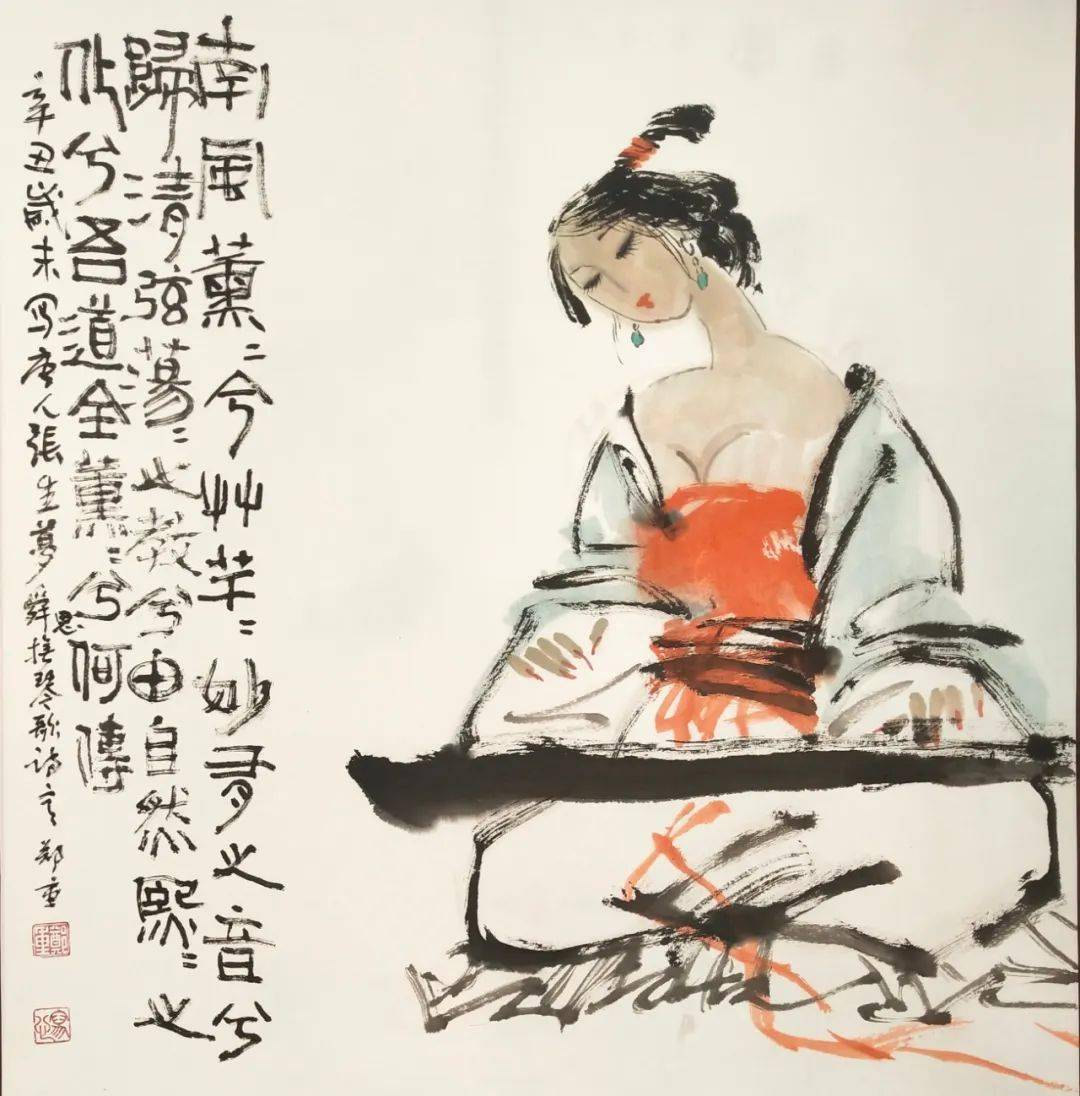 南風薰〻兮艸芊〻妙有之音兮
歸清弦蕩〻之教兮由自然熙〻之
化兮吾道全薰〻兮何傳
辛丑歲末写唐人張生夢舜思撫琴歌詩意 郑重
鄭重